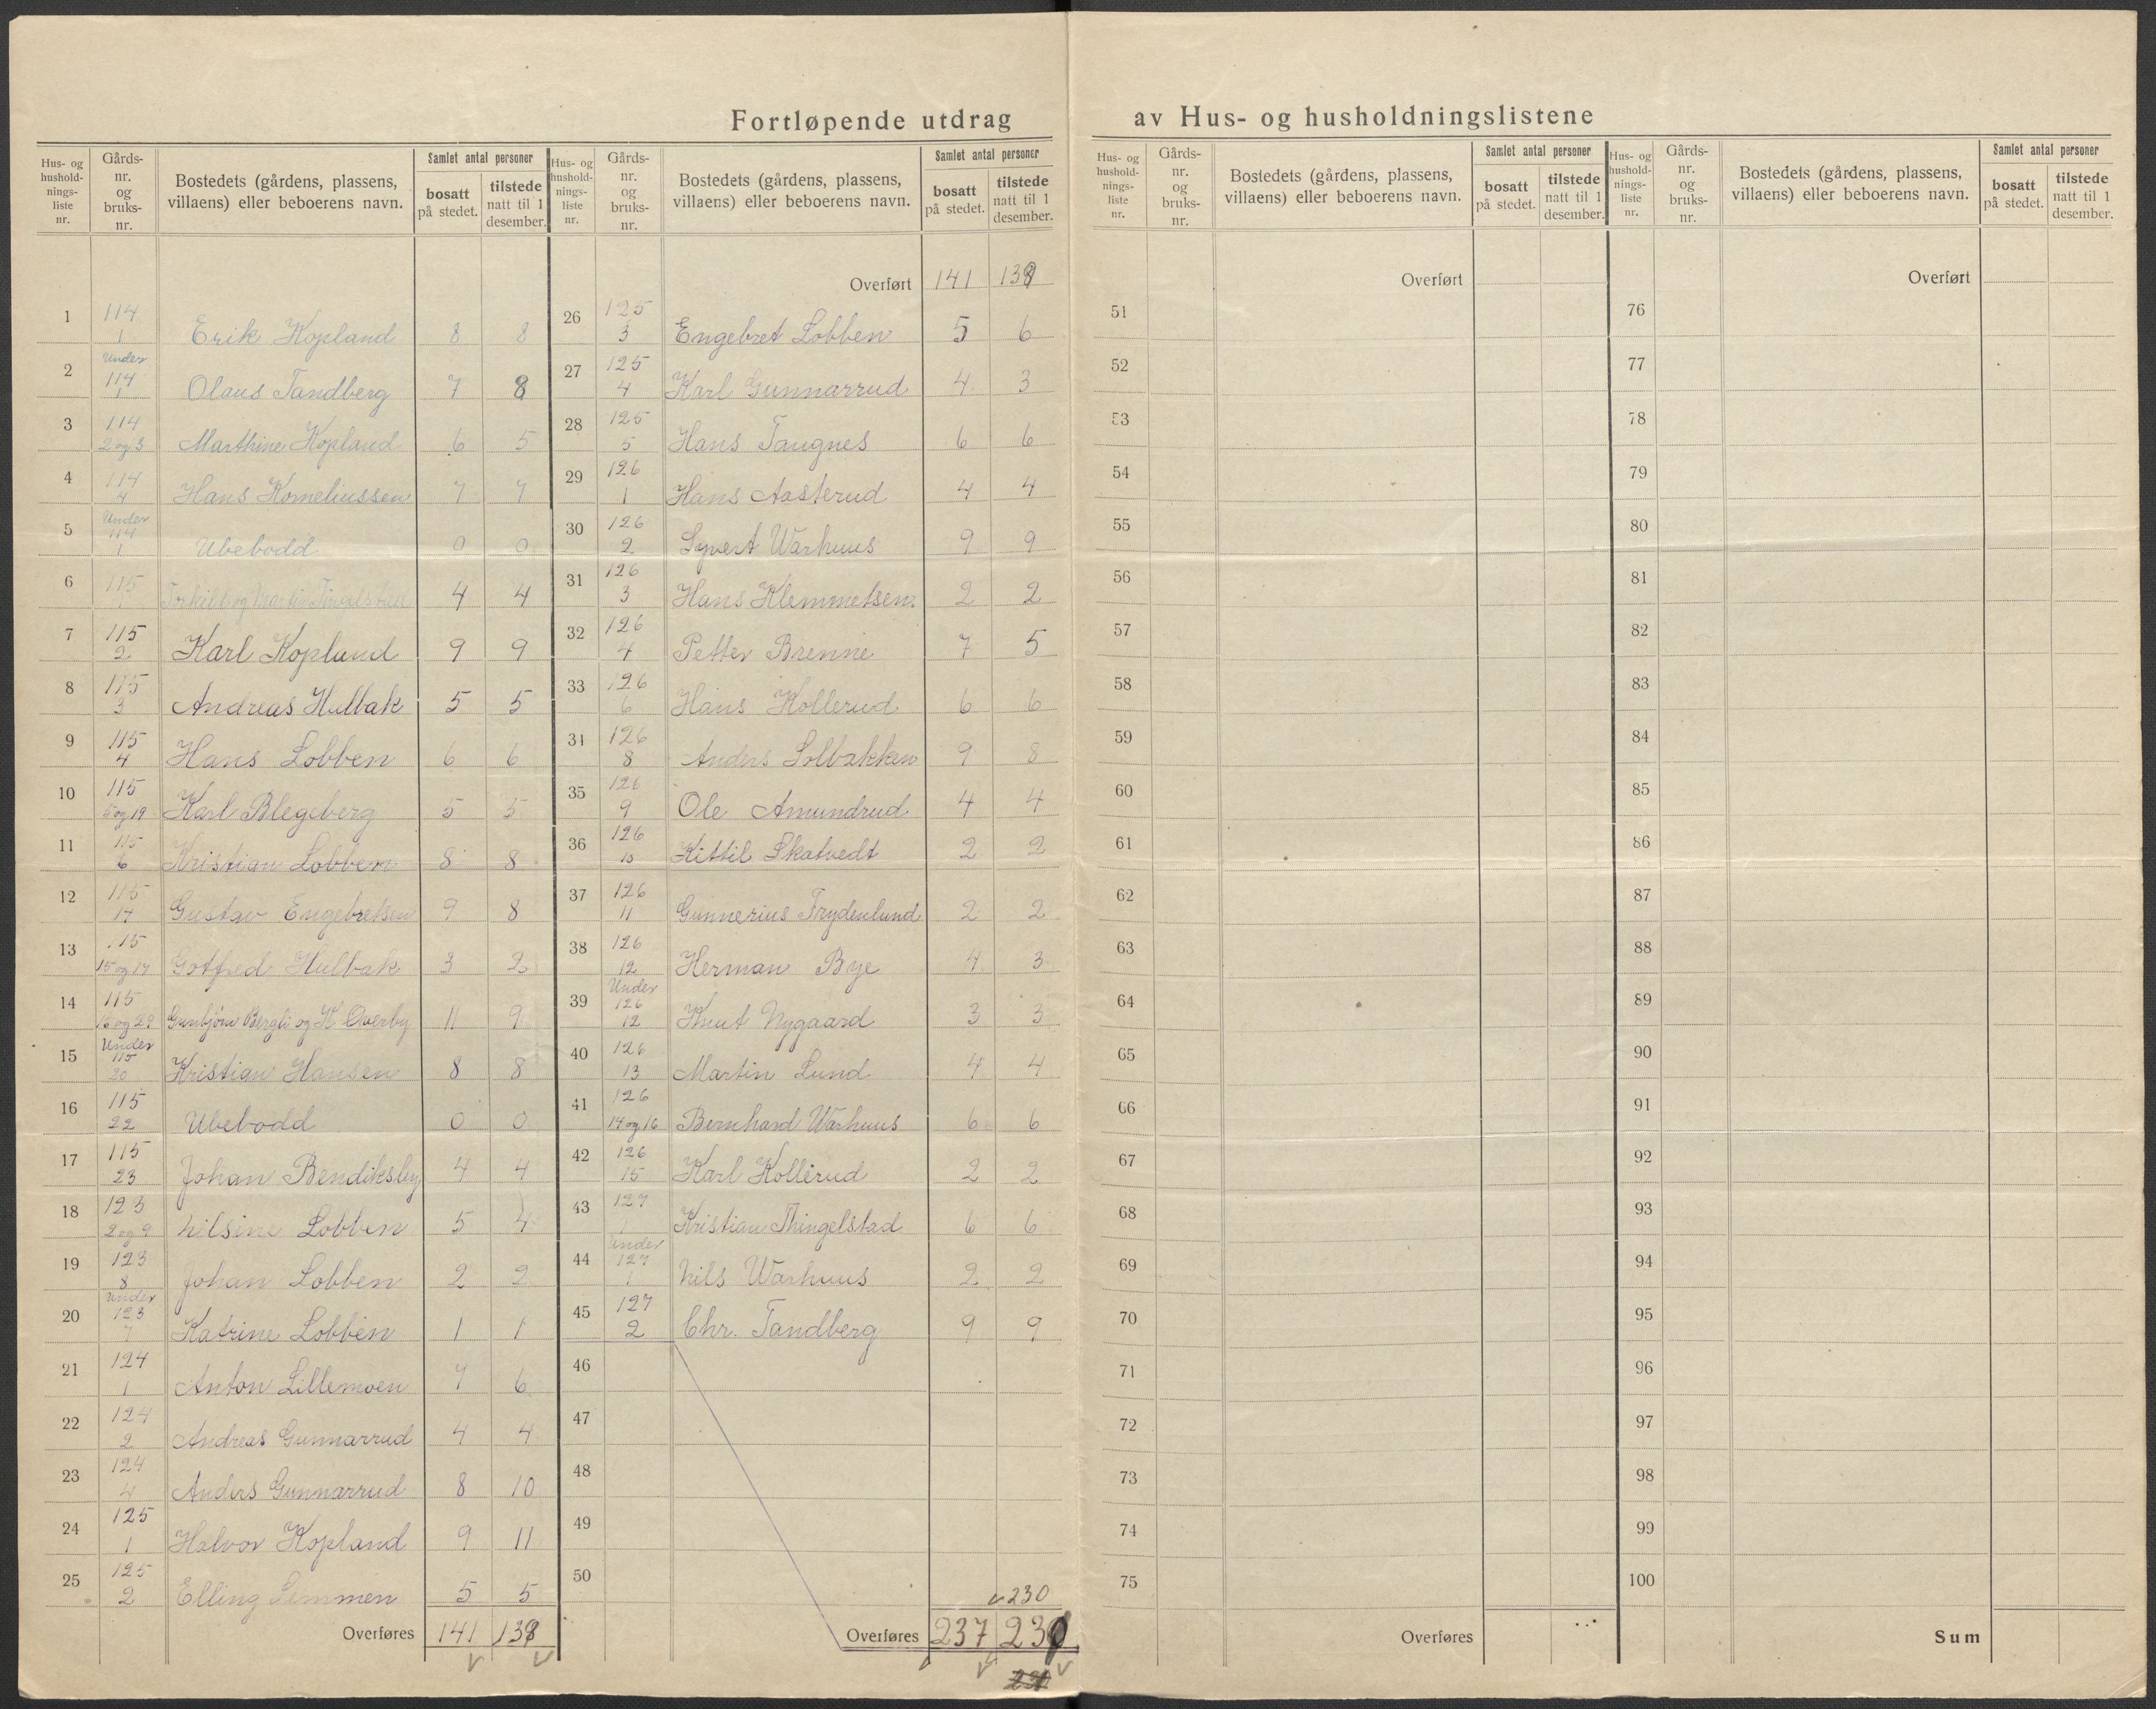 Fortløpende utdrag av Hus- og husholdningslistene
Hus- og hushold-nings-liste nr. Gårds-nr. og bruks-nr. Bostedets (gårdens, plassens, villaens) eller beboerens navn. Samlet antal personer bosatt på stedet. tilstede natt til 1 desember.
1 114 1 Erik Kopland 8 8
2 Under 114 1 Olaus Tandberg 7 8
3 114 2 og 3 Marthine Kopland 6 5
4 114 4 Hans Korneliussen 7 7
5 Under 114 1 Ubebodd 0 0
6 115 4 4
7 115 2 Karl Kopland 9 9
8 115 3 Andreas Hulbak 5 5
9 115 4 Hans Lobben 6 6
10 115 5 og 19 Karl Blegeberg 5 5
11 115 6 Kristian Lobben 8 8
12 115 14 Gustav Engebretsen 9 8
13 115 15 og 17 Gotfred Hulbak 3 2
14 115 16 og 29 Gunbjörn Bergli og K Overby 11 9
15 Under 115 20 Kristian Hansen 8 8
16 115 22 Ubebodd 0 0
17 115 23 Johan Bendiksby 4 4
18 123 2 og 9 Nilsine Lobben 5 4
19 123 8 Johan Lobben 2 2
20 Under 123 7 Katrine Lobben 1 1
21 124 1 Anton Lillemoen 7 6
22 124 2 Andreas Gunnarrud 4 4
23 124 4 Anders Gunnarrud 8 10
24 125 1 Halvor Kopland 9 11
25 125 2 Elling Semmen 5 5
Overføres 141 138
Hus- og hushold-nings-liste nr. Gårds-nr. og bruks-nr. Bostedets (gårdens, plassens, villaens) eller beboerens navn. Samlet antal personer bosatt på stedet. tilstede natt til 1 desember.
Overført 141 138
26 125 3 Engebret Lobben 5 6
27 125 4 Karl Gunnarrud 4 3
28 125 5 Hans Taugnes 6 6
29 126 1 Hans Aasterud 4 4
30 126 2 Syvert Warhuus 9 9
31 126 3 Hans Klemmetsen. 2 2
32 126 4 Petter Brenne 7 5
33 126 6 Hans Kollerud 6 6
31 126 8 Anders Solbakken 9 8
35 126 9 Ole Amundrud 4 4
36 126 10 Kittil Skatvedt 2 2
37 126 11 Gunnerius Frydenlund 2 2
38 126 12 Herman Bye 4 3
39 Under 126 12 Knut Nygaard 3 3
40 126 13 Martin Lund 4 4
41 126 14 og 16 Bernhard Warhuus 6 6
42 126 15 Karl Kollerud 2 2
43 127 1 Kristian Thingelstad 6 6
44 Under 127 1 Nils Warhuus 2 2
45 127 2 Chr. Tandberg 9 9
46
47
48
49
50
230
Overføres 237 230
Hus- og hushold-nings-liste nr. Gårds-nr. og bruks-nr. Bostedets (gårdens, plassens, villaens) eller beboerens navn. Samlet antal personer bosatt på stedet. tilstede natt til 1 desember.
Overført
51
52
53
54
55
56
57
58
59
60
61
62
63
64
65
66
67
68
69
70
71
72
73
74
75
Overføres
Hus- og hushold-nings-liste nr. Gårds-nr. og bruks-nr. Bostedets (gårdens, plassens, villaens) eller beboerens navn. Samlet antal personer bosatt på stedet. tilstede natt til 1 desember.
Overført
76
77
78
79
80
81
82
83
84
85
86
87
88
89
90
91
92
93
94
95
96
97
98
99
100
Sum